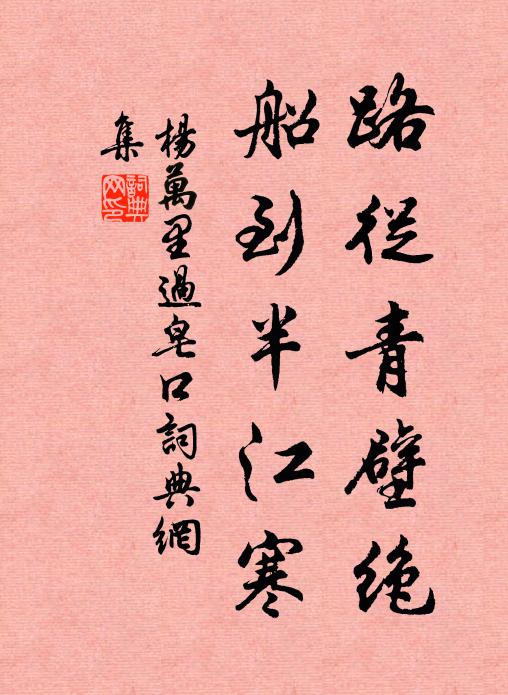 路從青壁絶
船到半江寒
楊萬里過皂口詞典網
集
詞典
网印